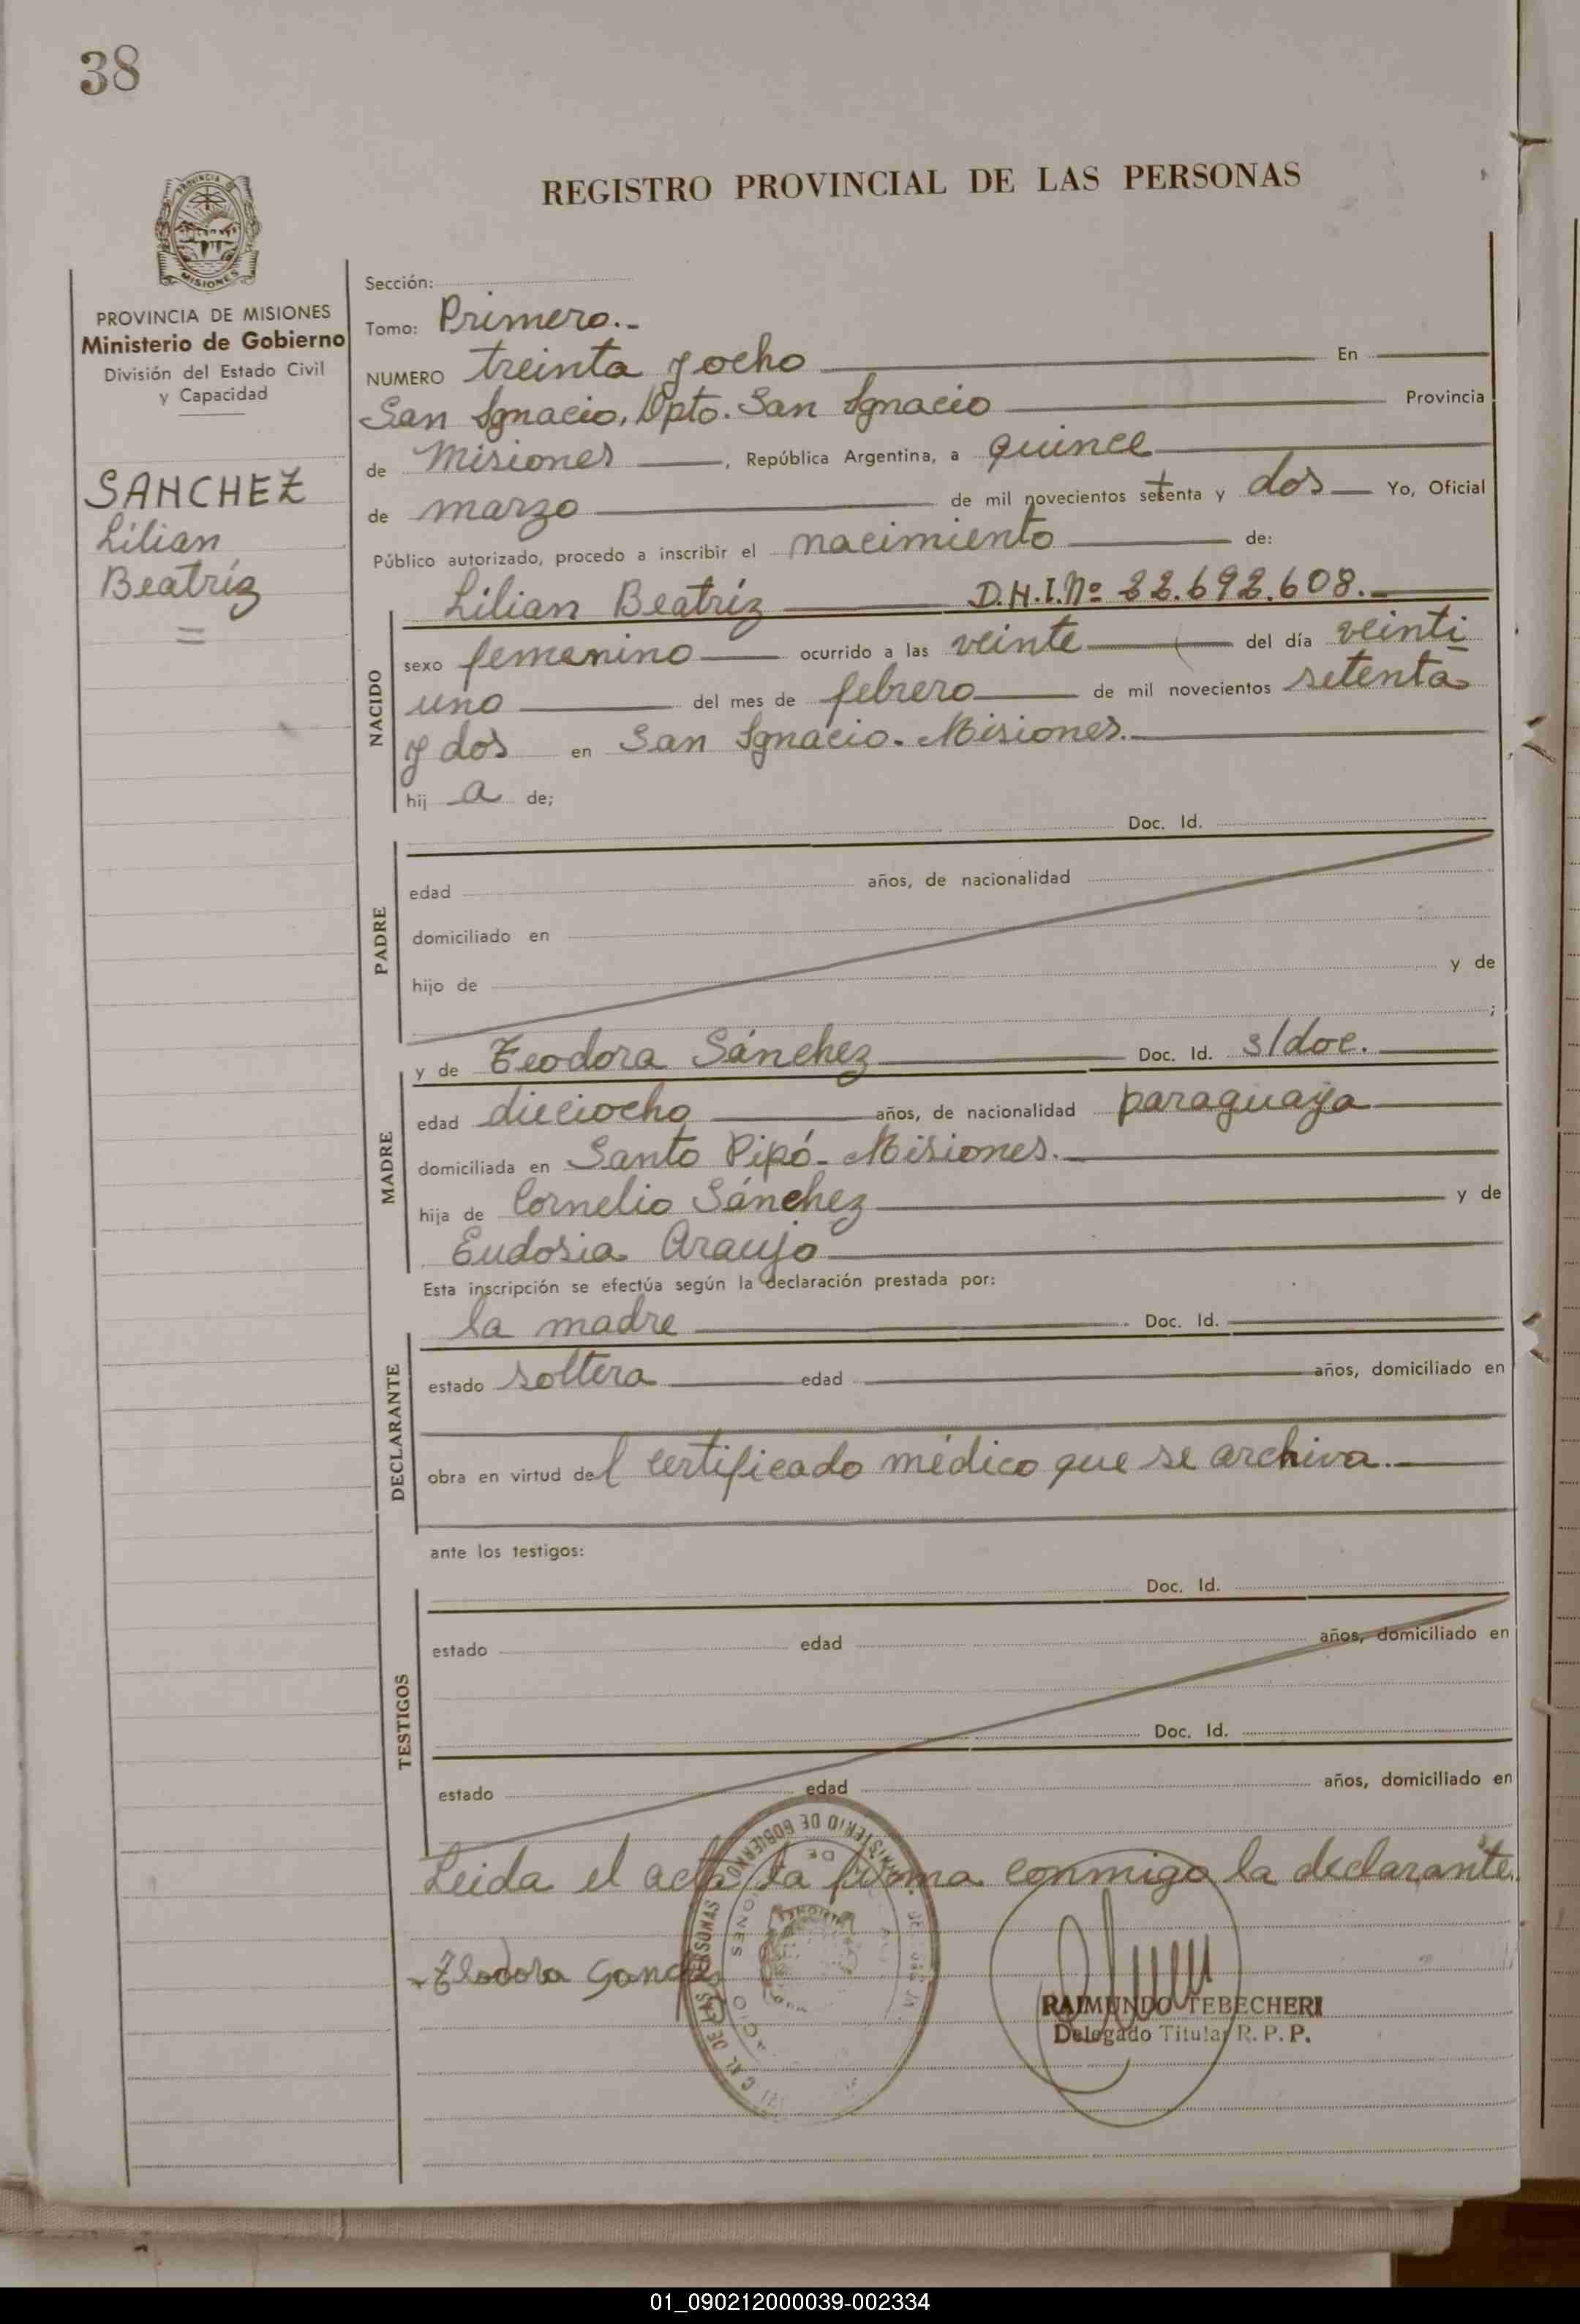 38
REGISTRO PROVINCIAL DE LAS PERSONAS
PROVINCIA DE
MISIONES
PROVINCIA DE MISIONES
Ministerio de Gobierno
División del Estado Civil
y Capacidad
SANCHEZ
Lilian
Beatríz
Sección:
Tomo: Primero.-
NUMERO treinta y ocho En
San Ignacio, Dpto. San Ignacio Provincia
de Misiones, República Argentina, a quince
de marzo de mil novecientos setenta y dos Yo, Oficial
Público autorizado, procedo a inscribir el nacimiento de:
Lilian Beatríz D.N.I.Nº 22.692.608.-
NACIDO
sexo femenino ocurrido a las veinte del día veinti
uno del mes de febrero de mil novecientos setenta
y dos en San Ignacio. Misiones.
hij a de;
PADRE
Doc. Id.
edad años, de nacionalidad
domiciliado en
hijo de y de
;
MADRE
y de Teodora Sánchez Doc. Id. s/doc.
edad dieciocho años, de nacionalidad paraguaya
domiciliada en Santo Pipó - Misiones.
hija de Cornelio Sánchez y de
Eudosia Araujo
Esta inscripción se efectúa según la declaración prestada por:
DECLARANTE
la madre Doc. Id.
estado soltera edad años, domiciliado en
obra en virtud del certificado médico que se archiva.
ante los testigos:
TESTIGOS
Doc. Id.
estado edad años, domiciliado en
Doc. Id.
estado edad años, domiciliado en
Leida el acta la firma conmigo la declarante.
MINISTERIO DE GOBIERNO
Teodora
RAIMUNDO TEBECHERI
Delegado Titular R. P. P.
01_090212000039-002334